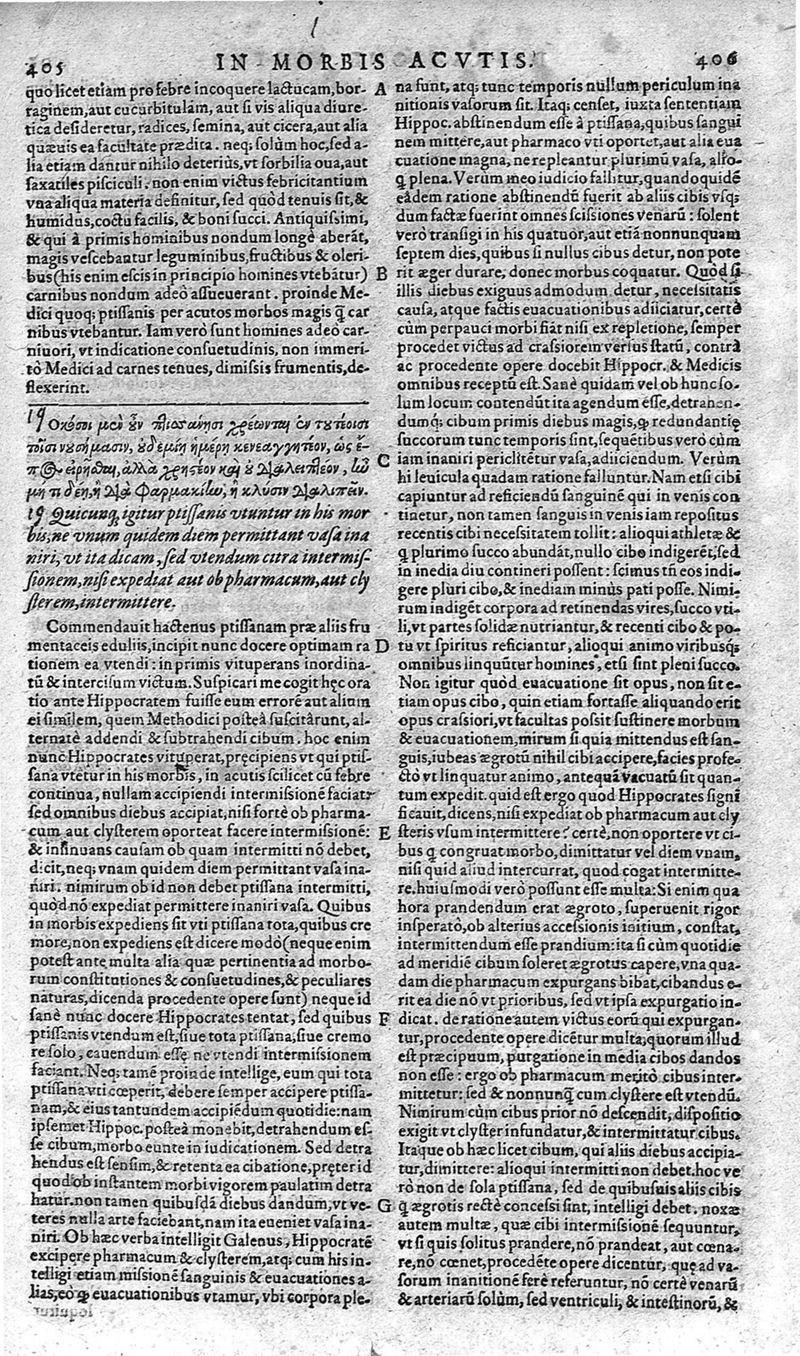 405
IN MORBIS ACVTIS.
406
quo licet etiam pro febre incoquere lactucam, bor-
raginem, aut cucurbitulam, aut si vis aliqua diure-
tica desideretur, radices, semina, aut cicera, aut alia
quæuis ea facultate prædita. neq; solùm hoc, sed a-
lia etiam dantur nihilo deterius, vt sorbilia oua, aut
saxatiles pisciculi. non enim victus febricitantium
vna aliqua materia definitur, sed quòd tenuis sit, &
humidus, coctu facilis, & boni succi. Antiquissimi,
& qui à primis hominibus nondum longè aberāt,
magis vescebantur leguminibus, fructibus & oleri-
bus (his enim escis in principio homines vtebātur)
carnibus nondum adeò assueuerant. proinde Me-
dici quoq; ptissanis per acutos morbos magis q̃ car
nibus vtebantur. Iam verò sunt homines adeò car-
niuori, vt indicatione consuetudinis, non immeri-
tò Medici ad carnes tenues, dimissis frumentis, de-
flexerint.
19 Ὁκόσοι μὲν οὖν πτισάνησι χρέωνται ἐν τουτέοισι
τοῖσι νουσήμασιν, οὐδεμίῃ ἡμέρῃ κενεαγγητέον, ὡς ἔ-
πος εἰρῆσθαι, ἀλλὰ χρητέον καὶ οὐ διαλειπτέον, ἢν
μή τι δέῃ, ἢ διὰ φαρμακίην, ἢ κλύσιν διαλιπεῖν.
19 Quicunq; igitur ptissanis vtuntur in his mor
bis, ne vnum quidem diem permittant vasa ina
niri, vt ita dicam, sed vtendum citra intermis-
sionem, nisi expediat aut ob pharmacum, aut cly
sterem, intermittere.
Commendauit hactenus ptissanam præ aliis fru
mentaceis eduliis, incipit nunc docere optimam ra
tionem ea vtendi: in primis vituperans inordina-
tū & intercisum victum. Suspicari me cogit hęc ora
tio ante Hippocratem fuisse eum errorē aut alium
ei similem, quem Methodici posteà suscitârunt, al-
ternatè addendi & subtrahendi cibum. hoc enim
nunc Hippocrates vituperat, pręcipiens vt qui ptis-
sana vtētur in his morbis, in acutis scilicet cū febre
continua, nullam accipiendi intermissionē faciat:
sed omnibus diebus accipiat, nisi fortè ob pharma-
cum aut clysterem oporteat facere intermissionē:
& insinuans causam ob quam intermitti nō debet,
dicit, neq; vnam quidem diem permittant vasa ina-
niri. nimirum ob id non debet ptissana intermitti,
quòd nō expediat permittere inaniri vasa. Quibus
in morbis expediens sit vti ptissana tota, quibus cre
more, non expediens est dicere modò (neque enim
potest ante multa alia quæ pertinentia ad morbo-
rum constitutiones & consuetudines, & peculiares
naturas, dicenda procedente opere sunt) neque id
sanè nunc docere Hippocrates tentat, sed quibus
ptissanis vtendum est, siue tota ptissana, siue cremo
re solo, cauendum esse ne vtendi intermissionem
faciant. Neq; tamē proinde intellige, eum qui tota
ptissana vti cœperit, debere semper accipere ptissa-
nam, & eius tantundem accipiēdum quotidie: nam
ipsemet Hippoc. posteà monebit, detrahendum es-
se cibum, morbo eunte in iudicationem. Sed detra
hendus est sensim, & retenta ea cibatione, pręter id
quod ob instantem morbi vigorem paulatim detra
hatur. non tamen quibusdā diebus dandum, vt ve-
teres nulla arte faciebant, nam ita eueniet vasa ina-
niri. Ob hæc verba intelligit Galenus, Hippocratē
excipere pharmacum & clysterem, atq; cum his in-
telligi etiam missionē sanguinis & euacuationes a-
lias, eò q̃ euacuationibus vtamur, vbi corpora ple-
A
B
C
D
E
F
G
na sunt, atq; tunc temporis nullum periculum ina
nitionis vasorum sit. Itaq; censet, iuxta sententiam
Hippoc. abstinendum esse à ptissana, quibus sangui
nem mittere, aut pharmaco vti oportet, aut alia eua
cuatione magna, ne repleantur plurimū vasa, alio-
q̃ plena. Verùm meo iudicio fallitur, quandoquidē
eâdem ratione abstinendū fuerit ab aliis cibis vsq;
dum factæ fuerint omnes scissiones venarū: solent
verò transigi in his quatuor, aut etiā nonnunquam
septem dies, quibus si nullus cibus detur, non pote
rit æger durare, donec morbus coquatur. Quòd si
illis diebus exiguus admodum detur, necessitatis
causa, atque factis euacuationibus adiiciatur, certè
cùm perpauci morbi fiāt nisi ex repletione, semper
procedet victus ad crassiorem versus statū, contrà
ac procedente opere docebit Hippocr. & Medicis
omnibus receptū est. Sanè quidam vel ob hunc so-
lum locum contendūt ita agendum esse, detrahen-
dumq; cibum primis diebus magis, q̃ redundantię
succorum tunc temporis sint, sequētibus verò cùm
iam inaniri periclitētur vasa, adiiciendum. Verùm
hi leuicula quadam ratione falluntur. Nam etsi cibi
capiuntur ad reficiendū sanguinē qui in venis con
tinetur, non tamen sanguis in venis iam repositus
recentis cibi necessitatem tollit: alioqui athletæ &
q̃ plurimo succo abundāt, nullo cibo indigerēt, sed
in inedia diu contineri possent: scimus tñ eos indi-
gere pluri cibo, & inediam minùs pati posse. Nimi-
rum indigēt corpora ad retinendas vires, succo vti-
li, vt partes solidæ nutriantur, & recenti cibo & po-
tu vt spiritus reficiantur, alioqui animo viribusq;
omnibus linquūtur homines, etsi sint pleni succo.
Non igitur quòd euacuatione sit opus, non sit e-
tiam opus cibo, quin etiam fortasse aliquando erit
opus crassiori, vt facultas possit sustinere morbum
& euacuationem, mirum si quia mittendus est san-
guis, iubeas ægrotū nihil cibi accipere, facies profe-
ctò vt linquatur animo, antequā vacuatū sit quan-
tum expedit. quid est ergo quod Hippocrates signi
ficauit, dicens, nisi expediat ob pharmacum aut cly
steris vsum intermittere? certè, non oportere vt ci-
bus q̃ congruat morbo, dimittatur vel diem vnam,
nisi quid aliud intercurrat, quod cogat intermitte-
re. huiusmodi verò possunt esse multa: Si enim qua
hora prandendum erat ægroto, superuenit rigor
insperatò, ob alterius accessionis initium, constat,
intermittendum esse prandium: ita si cùm quotidie
ad meridiē cibum soleret ægrotus capere, vna qua-
dam die pharmacum expurgans bibat, cibandus e-
rit ea die nō vt prioribus, sed vt ipsa expurgatio in-
dicat. de ratione autem victus eorū qui expurgan-
tur, procedente opere dicētur multa, quorum illud
est præcipuum, purgatione in media cibos dandos
non esse: ergo ob pharmacum meritò cibus inter-
mittetur: sed & nonnunq̃ cum clystere est vtendū.
Nimirum cùm cibus prior nō descendit, dispositio
exigit vt clyster infundatur, & intermittatur cibus.
Itaque ob hæc licet cibum, qui aliis diebus accipia-
tur, dimittere: alioqui intermitti non debet. hoc ve
rò non de sola ptissana, sed de quibusuis aliis cibis
q̃ ægrotis rectè concessi sint, intelligi debet. noxæ
autem multæ, quæ cibi intermissionē sequuntur,
vt si quis solitus prandere, nō prandeat, aut cœna-
re, nō cœnet, procedēte opere dicentur, quę ad va-
sorum inanitionē ferè referuntur, nō certè venarū
& arteriarū solùm, sed ventriculi, & intestinorū, &